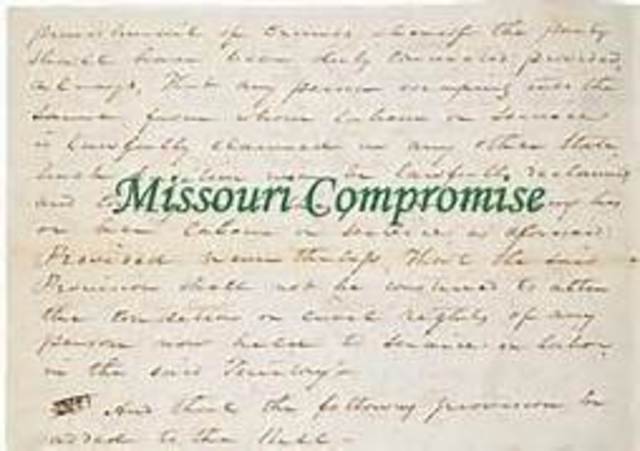 punishment of crimes whereof the party
shall have been duly convicted provided
always, That any person escaping into the
same from whom labour or service
is lawfully claimed in any other State
such fugitive may be lawfully reclaimed
Missouri Compromise
and
or her labour or service as aforesaid:
Provided nevertheless, That the said
Provision shall not be construed to alter
the condition or civil rights of any
person now held to service or labor
in the said Territory
And that the following provision be
added to the Bill